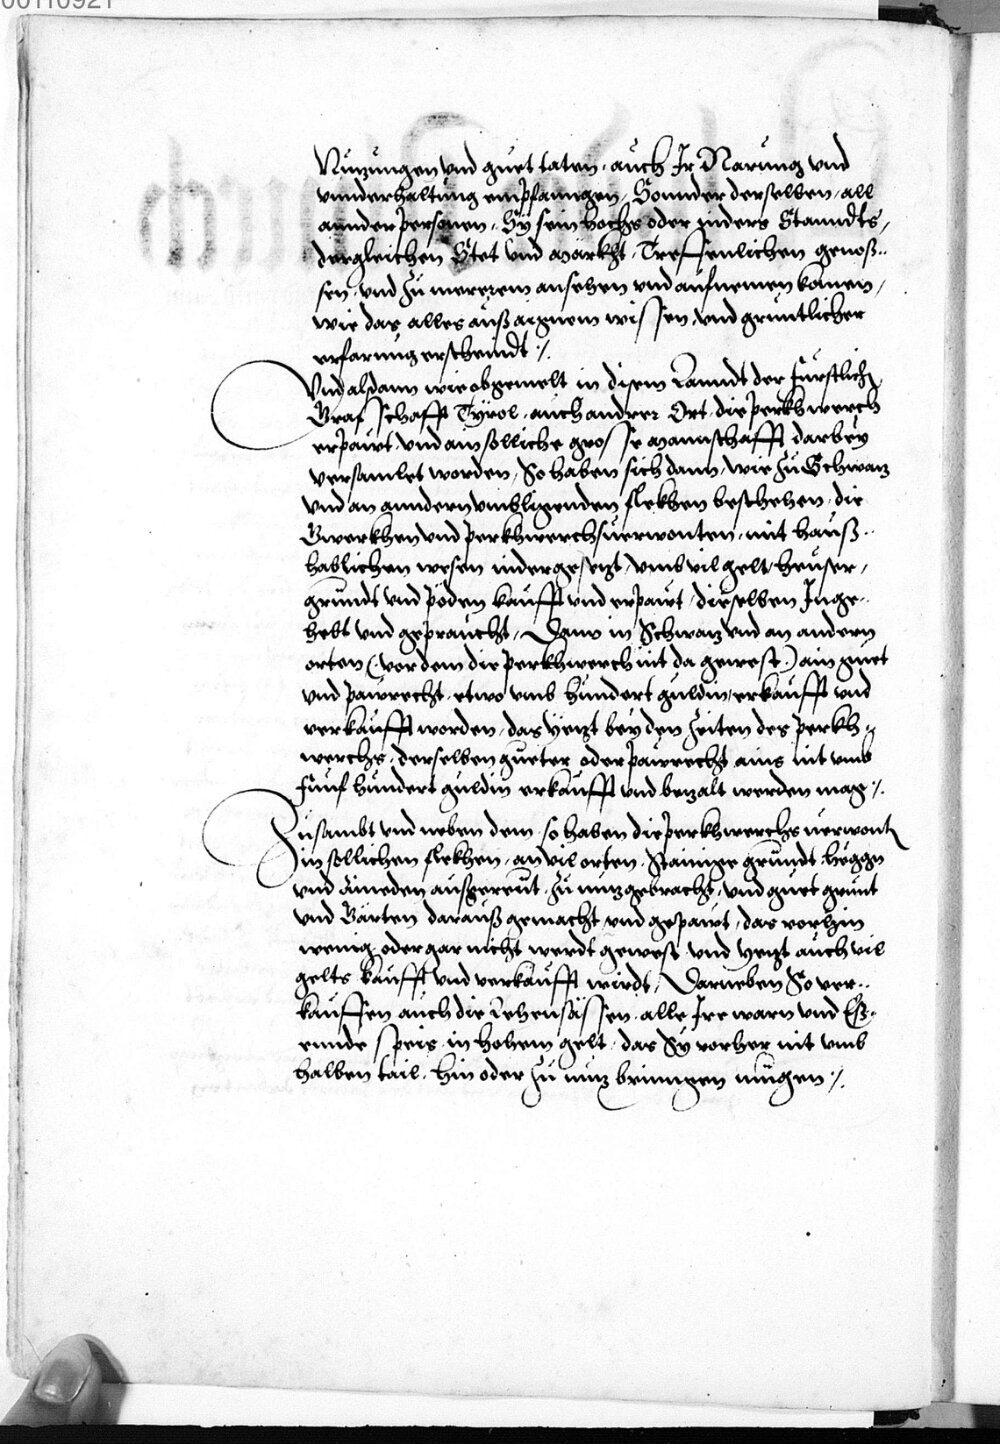 Nutzungen vnd guet taten, auch Ir Narung vnd
vnnderhaltung empfanngen, Sonnder derselben, all
annder personen, Sy sein hochs oder niders Stanndts,
dergleichen Stet vnd Märkht, Treffenlichen genoß..
sen, vnd zu mererem ansehen vnd aufnemen komen,
wie das alles auß aignem wissen, vnd gruntlicher
erfarung erscheindt ./.
Vnd alßdann wie obgemelt in disem Lanndt der Furstlichen
Graffschafft Tyrol, auch andrer Ort, die perkhwerch
erpawt, vnd ain solliche grosse Mannschafft darbey
versamlet worden, So haben sich dann, wie zu Schwatz
vnd an anndern vmbligenden flekhen beschehen, die
Gwerkhen vnd perkhwerchsuerwonten, mit hauß..
hablichen wesen nidergesetzt, vmb vil gelt, heuser,
grundt vnd pöden kaufft vnd erpawt, dieselben Inge..
hebt vnd gepraucht, Dann in Schwatz vnd an andern
orten (vor dem die perkhwerch nit da gewest) ain guet
vnd pawrecht, etwo vmb hundert guldin, erkaufft vnd
verkaufft worden, das yetzt bey den zeiten des perkh..
werchs, derselben gueter oder pawrecht ains nit vmb
funf hundert guldin erkaufft vnd betzalt werden mag ./.
Zusambt vnd neben dem, so haben die perkhwerchsuerwonten
in sollichen flekhen, an vil orten, Stainige grundt, heggen
vnd Aineden außgereut, zu nutz gebracht, vnd guet grunt
vnd Gärten darauß gemacht, vnd gepawt, das vorhin
wenig, oder gar nicht werdt gewest, vnd yetzt auch vil
gelts kaufft vnd verkaufft wirdt, Darneben So ver..
kauffen auch die Lehensässen, alle Ire warn vnd Esz..
ennde speis, in hohem gelt, das Sy vorher nit vmb
halben tail, hin oder zu nutz bringen mugen ./.